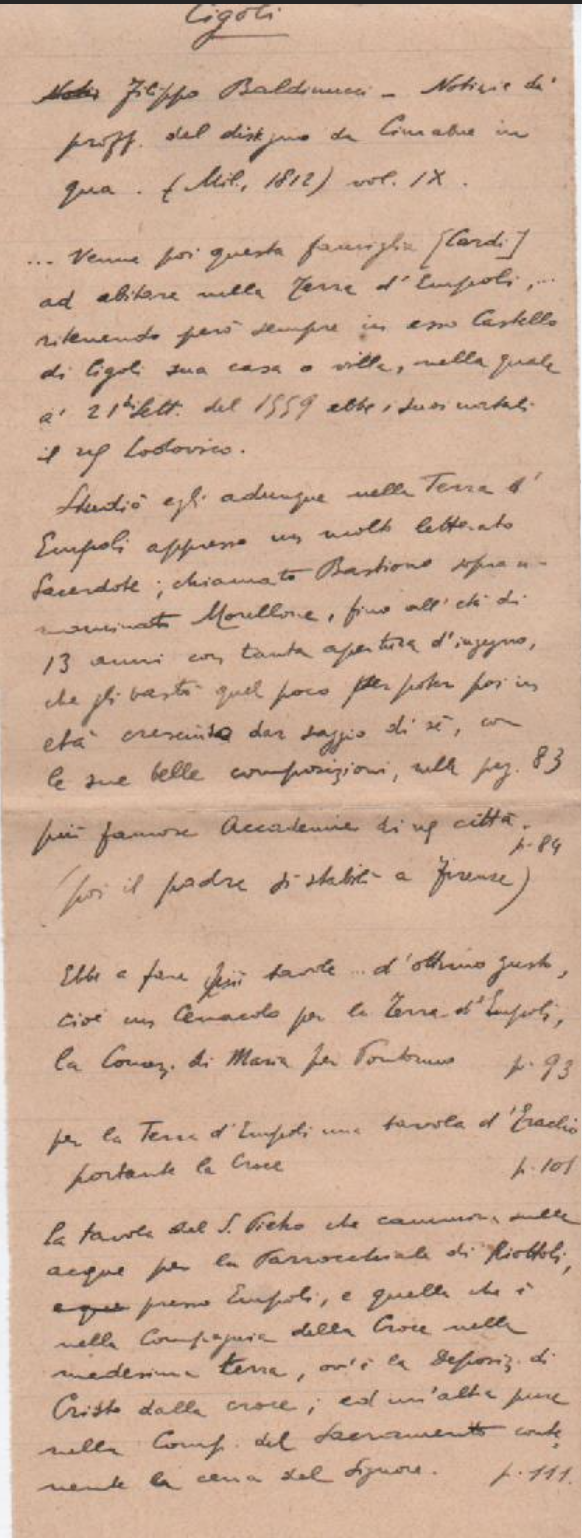 Cigoli
Filippo Baldinucci - Notizie de'
proff. del disegno da Cimabue in
qua. (Mil., 1812) vol. IX.
... Venne poi questa famiglia [Cardi]
ad abitare nella Terra d'Empoli,...
ritenendo però sempre in esso Castello
di Cigoli sua casa o villa, nella quale
a' 21 di Sett. del 1559 ebbe i suoi natali
il Lodovico.
Studiò egli adunque nella Terra d'
Empoli appresso un molto letterato
Sacerdote; chiamato Bastiano sopran-
nominato Morellone, fino all'età di
13 anni con tanta apertura d'ingegno,
che gli bastò quel poco per poter poi in
età cresciuta dar saggio di sé, con
le sue belle composizioni, nelle pag. 83
più famose Accademie di città.
p. 84
(poi il padre si stabilì a Firenze)
Ebbe a fare più tavole ... d'ottimo gusto,
cioè un Cenacolo per la Terra d'Empoli,
la Concez. di Maria per Pontormo p. 93
per la Terra d'Empoli una tavola d'Eraclio
portante la Croce p. 101
la tavola del S. Pietro che cammina sulle
acque per la Parrocchiale di Riottoli,
presso Empoli, e quella che è
nella Compagnia della Croce nella
medesima terra, ov'è la Deposiz. di
Cristo dalla croce; ed un'altra pure
nella Comp. del Sacramento conte
nente la cena del Signore. p. 111.